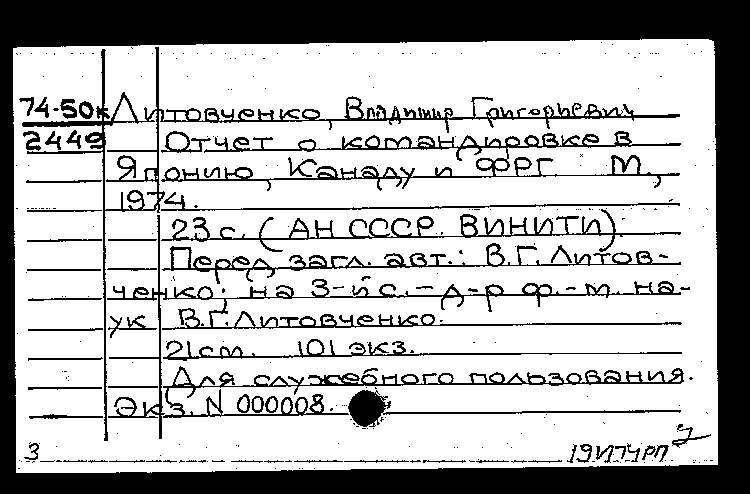 74-50к Литовченко, Владимир Григорьевич
2449 Отчет о командировке в
Японию, Канаду и ФРГ М.,
1974.
23 с. (АН СССР. ВИНИТИ).
Перед загл. авт.: В.Г. Литов-
ченко; на 3-й с. - д-р ф.-м. на-
ук В.Г. Литовченко.
21 см. 101 экз.
Для служебного пользования.
Экз. N 000008.
3